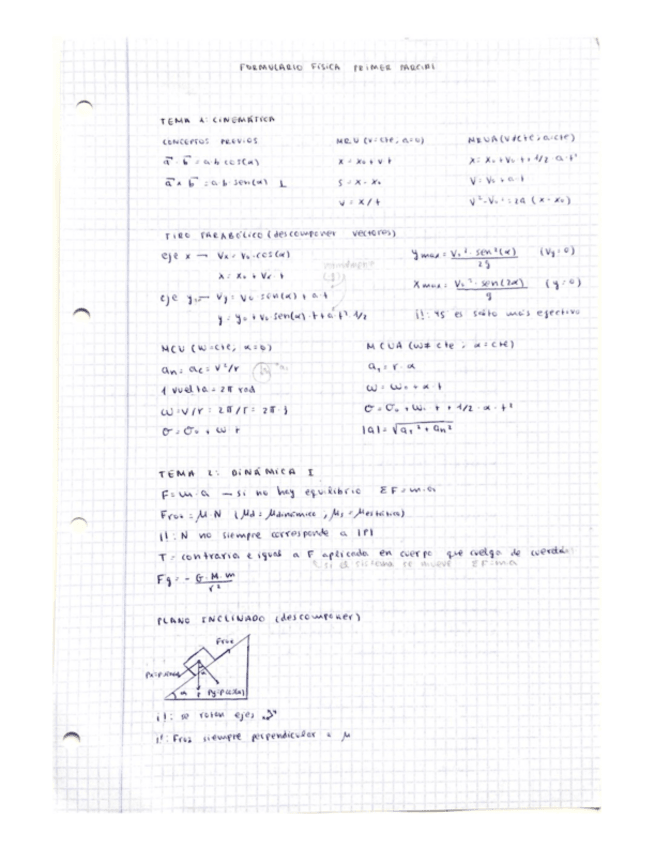 FORMULARIO FÍSICA PRIMER PARCIAL
TEMA 1: CINEMÁTICA
CONCEPTOS PREVIOS
a · b = a·b cos(α)
a x b = a·b sen(α) ⊥
MRU (v=cte, a=0)
x = x₀ + v t
s = x - x₀
v = x/t
MRUA (v≠cte, a=cte)
x = x₀ + v₀ t + 1/2 · a · t²
v = v₀ + a · t
v² - v₀² = 2a (x - x₀)
TIRO PARABÓLICO (descomponer vectores)
eje x → Vx = V₀ · cos(α)
x = x₀ + Vx · t
eje y → Vy = V₀ sen(α) + a·t
y = y₀ + V₀ sen(α) · t + a t² 1/2
y max = V₀² · sen²(α) / 2g (Vy = 0)
x max = V₀² · sen(2α) / g (y = 0)
¡!: 45 es salto más efectivo
MCU (ω=cte, α=0)
an = ac = v²/r
1 vuelta = 2π rad
ω = v/r = 2π/T = 2π · f
σ = σ₀ + ω · t
MCUA (ω≠ cte, α = cte)
at = r · α
ω = ω₀ + α · t
σ = σ₀ + ω₀ · t + 1/2 · α · t²
|a| = √at² + an²
TEMA 2: DINÁMICA I
F = m · a — si no hay equilibrio ΣF = m·a
Froz = μ · N (μd = μdinámica, μs = μestática)
¡!: N no siempre corresponde a |P|
T = contraria e igual a F aplicada en cuerpo que cuelga de cuerda
si el sistema se mueve ΣF = ma
Fg = - G · M · m / r²
PLANO INCLINADO (descomponer)
Froz
α
P
Py = P cos(α)
¡!: se rotan ejes
¡!: Froz siempre perpendicular a